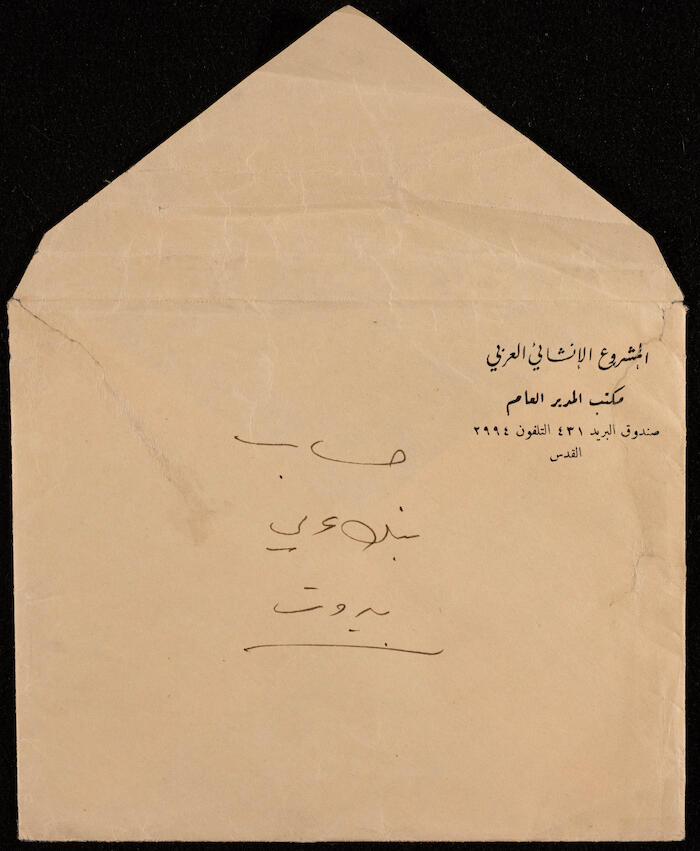 المشروع الإنشائي العربي
مكتب المدير العام
صندوق البريد ٤٣١ التلفون ٢٩٩٤
القدس
حساب
بيروت